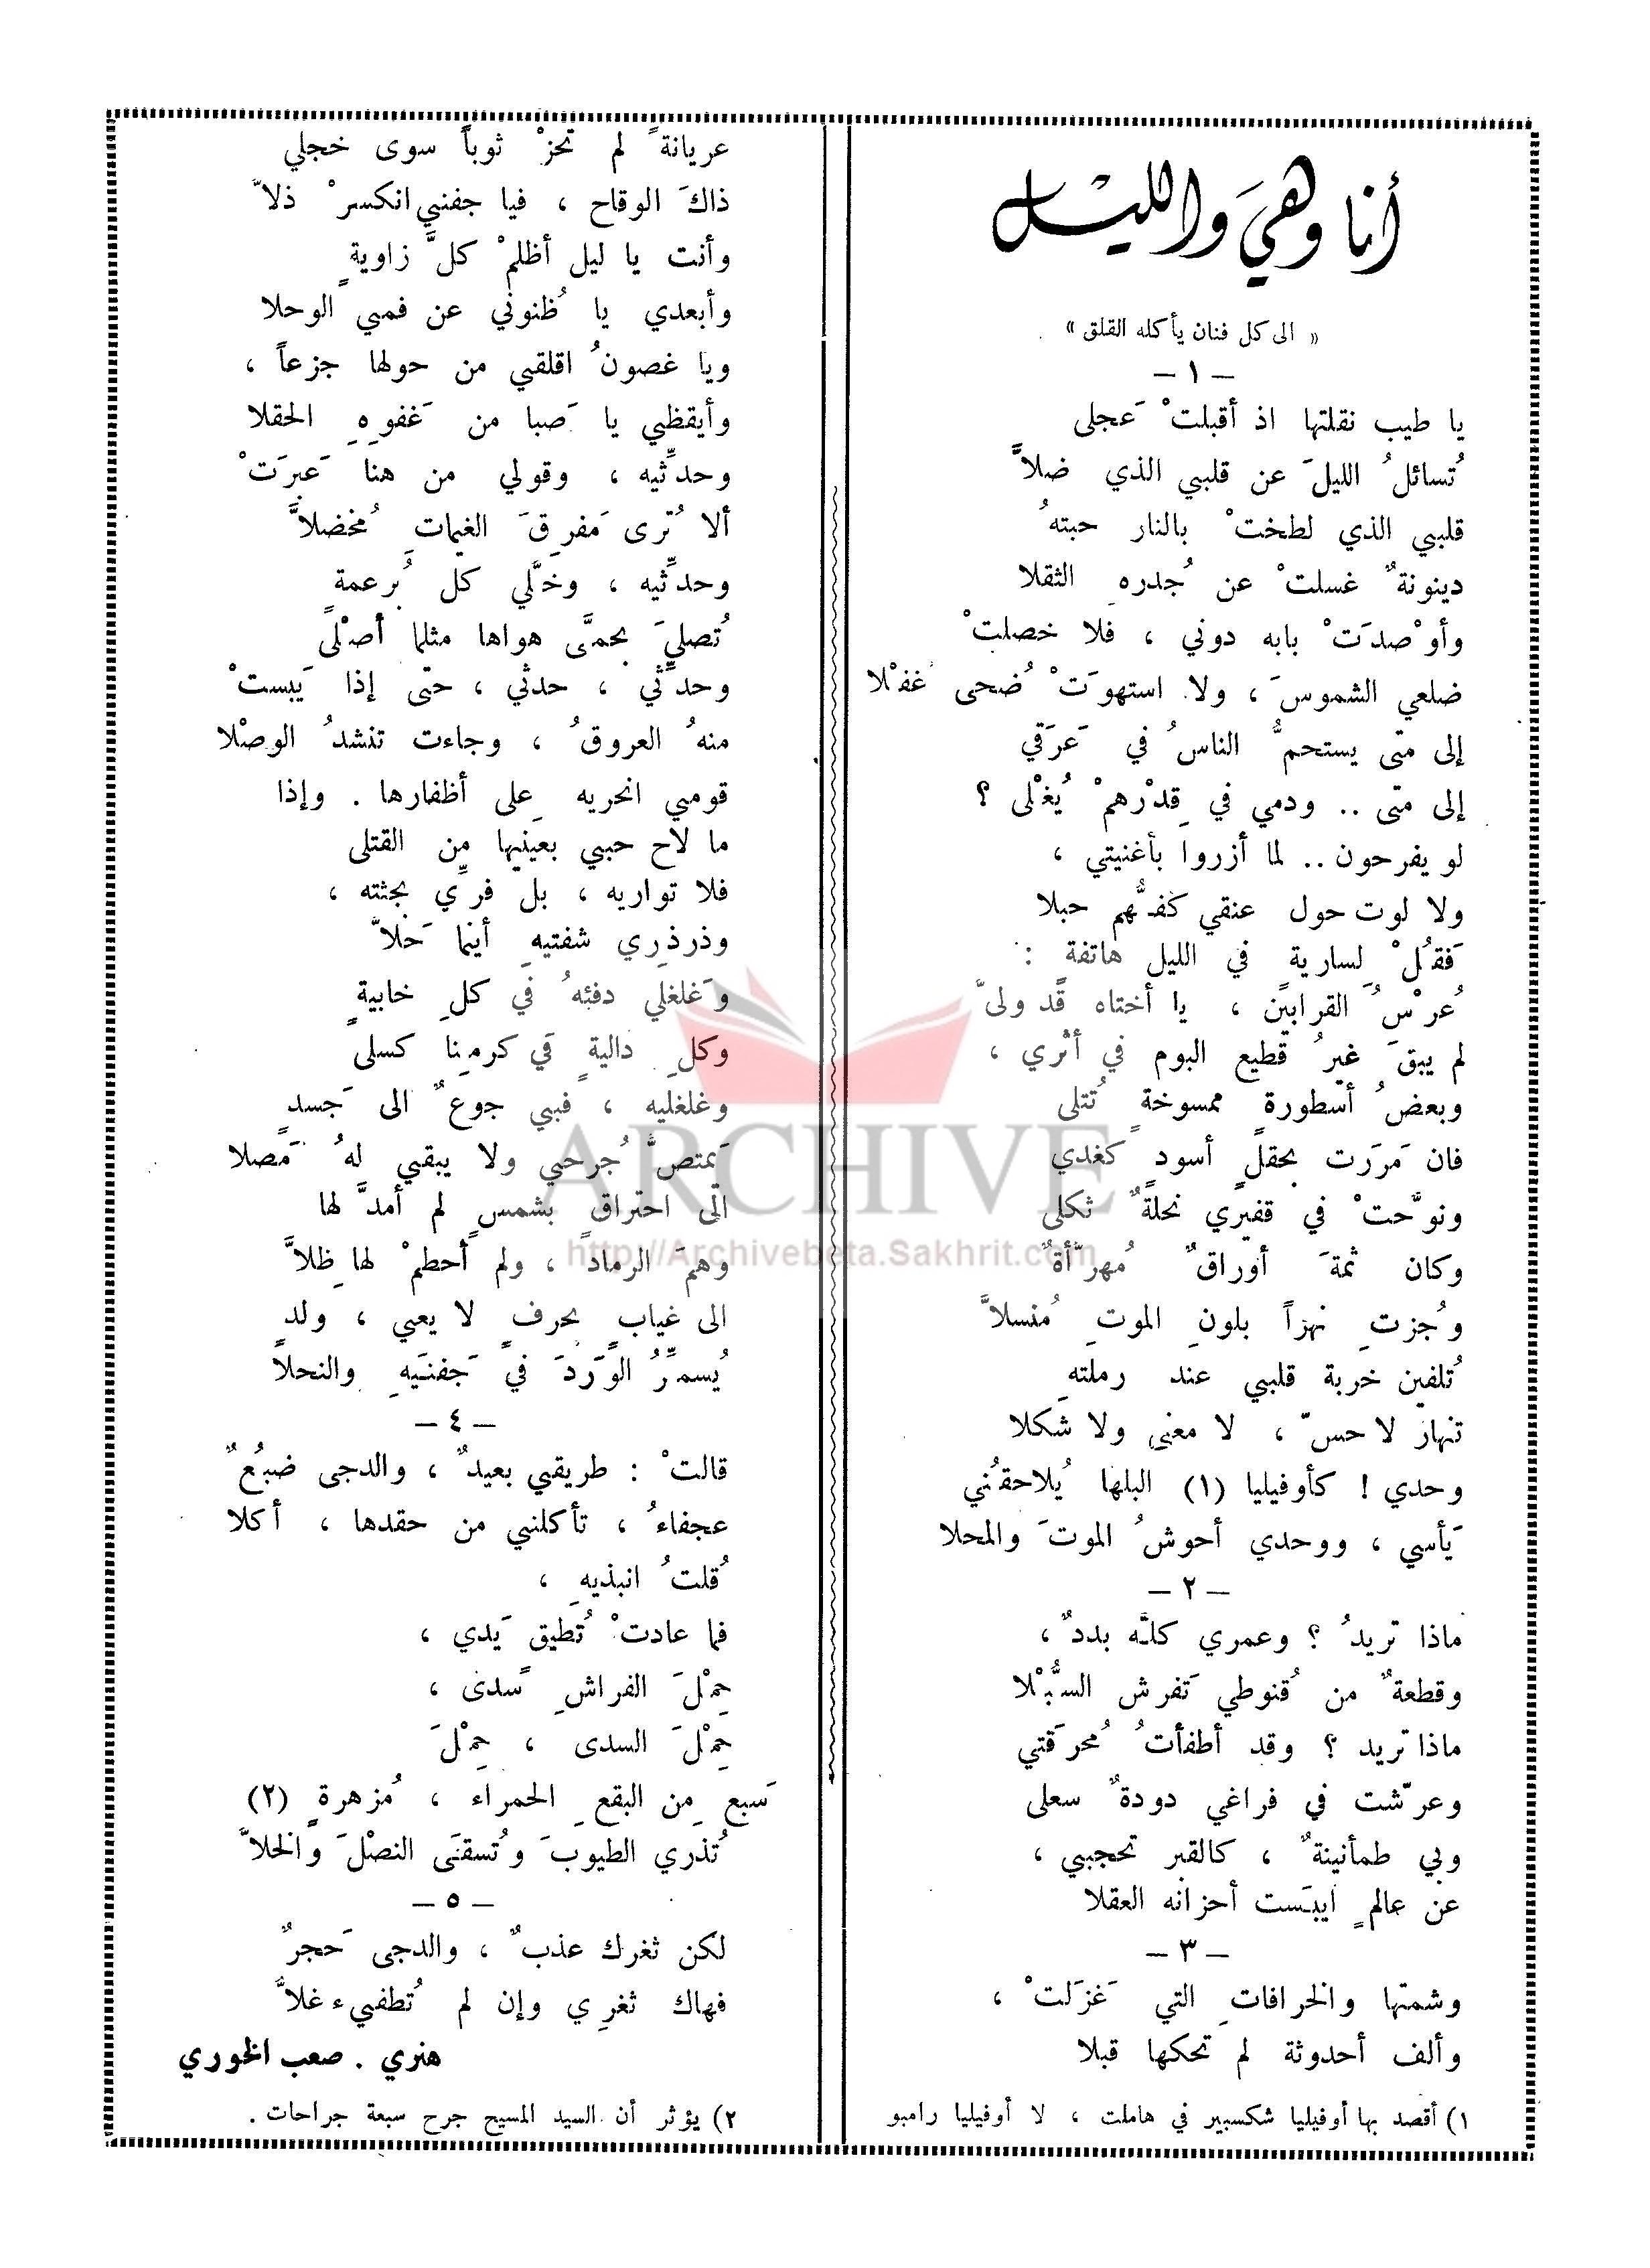 أنا وهيَ والليل
« الى كل فنان يأكله القلق »
– ١ –
يا طيب نقلتها اذ أقبلتْ عَجلى
تُسائلُ الليلَ عن قلبي الذي ضلاَّ
قلبي الذي لطخت بالنارْ حبتهُ
دينونةٌ غسلتْ عن جُدره الثقلا
وأوْصدَتْ بابه دوني ، فلا خصلتْ
ضلعي الشموسَ ، ولا استهوَتْ ضُحى غفْلا
إلى متى يستحمُّ الناسُ في عَرَقي
إلى متى .. ودمي في قِدْرهمْ يُغْلى ؟
لو يفرحون .. لما أزروا بأغنيتي ،
ولا لوت حول عنقي كفُّهم حبلا
فَقُلْ لِسارية في الليل هاتفة :
عُرْسُ القرابين ، يا أختاه قد ولىَّ
لم يبقَ غيرُ قطيع البوم في أثري ،
وبعضُ أسطورةٍ ممسوخةٍ تُتلى
فان مَرَرَت بحقلٍ أسودٍ كغدي
ونوَّحتْ في قفيري نحلةٌ ثكلى
وكان ثمةَ أوراقٌ مُهرّأةٌ
وجُزتِ نهراً بلونِ الموتِ مُنسلاَّ
تُلفين خربة قلبي عند رملتهِ
تنهار لا حسّ ، لا معنى ولا شكلا
وحدي ! كأوفيليا (١) البلها يُلاحقُني
يَأسي ، ووحدي أحوشُ الموتَ والمحلا
– ٢ –
ماذا تريدُ ؟ وعمري كلّه بددٌ ،
وقطعةٌ من قُنوطي تَفرش السبُّلا
ماذا تريد ؟ وقد أطفأتُ مُحرَقتي
وعرّشت في فراغي دودةٌ سعلى
وبي طمأنينةٌ ، كالقبر تحجبني ،
عن عالمٍ ايبَست أحزانه العقلا
– ٣ –
وشمتها والخرافاتِ التي غَزَلتْ ،
وألف أحدوثة لم تحكها قبلا
١) أقصد بها أوفيليا شكسبير في هاملت ، لا أوفيليا رامبو
عريانةً لم تحزْ ثوباً سوى خجلي
ذاكَ الوقاح ، فيا جفني انكسرْ ذلاَّ
وأنت يا ليل أظلمْ كلَّ زاويةٍ
وأبعدي يا ظُنوني عن فمي الوحلا
ويا غصونُ اقلقي من حولها جزعاً ،
وأيقظي يا صَبا من غَفوهِ الحقلا
وحدِّثيه ، وقولي من هنا عَبرَتْ
ألا تُرى مَفرِقَ الغيمات مُخضلاَّ
وحدِّثيه ، وخلّي كل بُرعمةٍ
تُصليَ بحمَّى هواها مثلما أُصْلى
وحدِّثي ، حدثي ، حتى إذا يَبستْ
منهُ العروقُ ، وجاءت تنشدُ الوصْلا
قومي انحريه عِلى أظفارها . وإذا
ما لاح حبي بعينيها مِن القتلى
فلا تواريه ، بل فرِّي بجثته ،
وذرذِري شفتيهِ أينما حَلاَّ
وغَلغلي دفئهُ في كلِ خابيةٍ
وكلِ داليةٍ في كرمِنا كسلى
وغلغليه ، فبي جوعٌ الى جَسدٍ
يَمتصُّ جُرحي ولا يبقي لهُ مَصلا
الى احتراقٍ بشمسٍ لم أمدَّ لها
وهمَ الرماد ، ولم أحطمْ لها ظِلاَّ
الى غيابٍ بحرفٍ لا يعي ، ولدٍ
يُسمِّرُ الوَردَ في جَفنَيهِ والنحلا
– ٤ –
قالتْ : طريقي بعيدٌ ، والدجى ضبُعٌ
عجفاءُ ، تأكلني من حقدها ، أكلا
قُلتُ انبذيهِ ،
فما عادتْ تُطيق يَدي ،
حِمْلَ الفراشِ سدىً ،
حِمْلَ السدى ، حِمْلَ
سَبع مِن البقعِ الحمراء ، مُزهرةٍ (٢)
تُذري الطيوبَ وتُسقَى النصْلَ والخلاَّ
– ٥ –
لكن ثغرك عذبٌ ، والدجى حَجرٌ
فهاك ثغرِي وإن لم تُطفيء غلاَّ
هنري . صعب الخوري
٢) يؤثر أن السيد المسيح جرح سبعة جراحات .
ARCHIVE
http://Archivebeta.Sakhrit.com